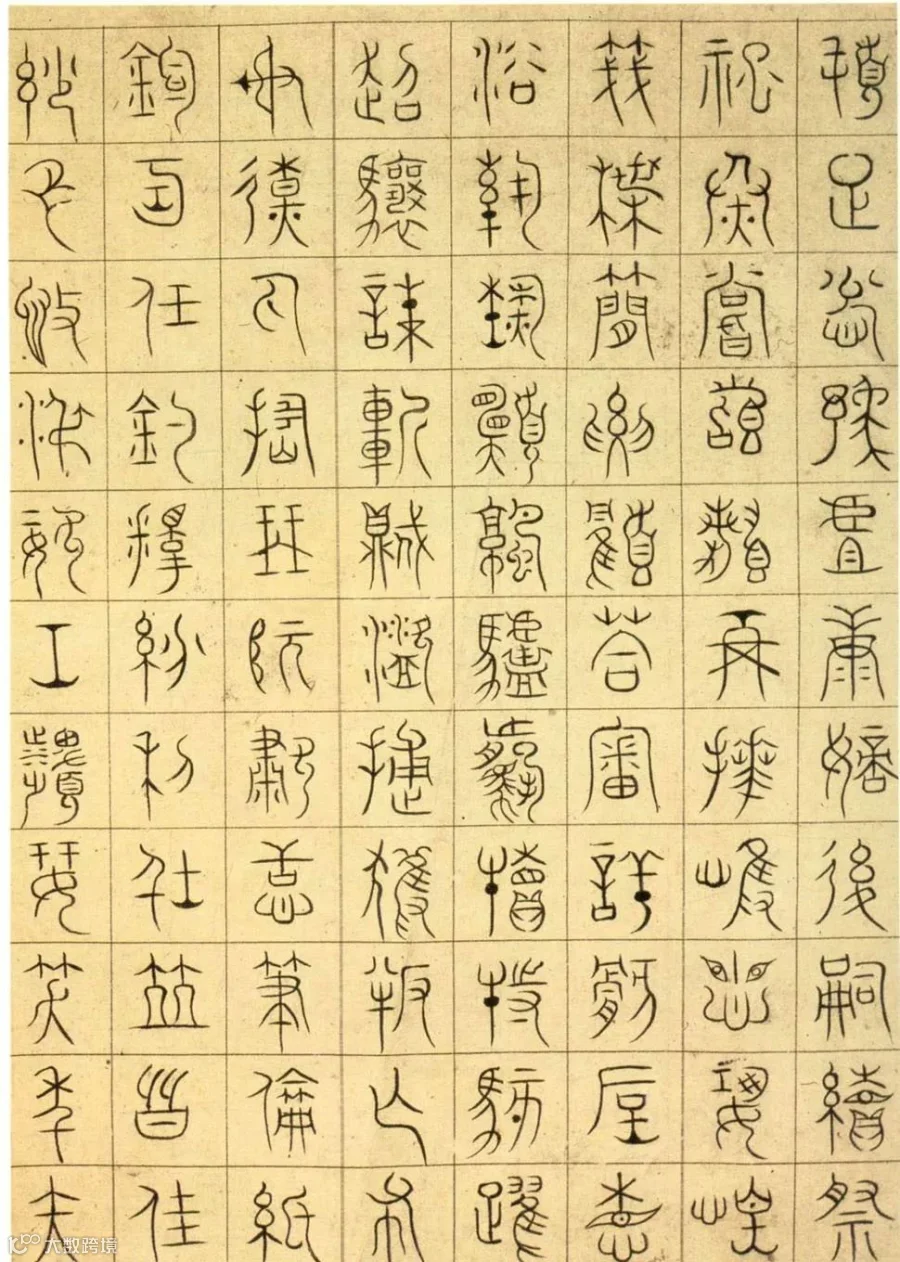 頓足悅豫且康嫡後嗣續祭
祀烝嘗稽顙再拜悚懼恐惶
牋牒簡要顧答審詳骸垢想
浴執熱願涼驢騾犢特駭躍
超驤誅斬賊盜捕獲叛亡布
射遼丸嵇琴阮嘯恬筆倫紙
鈞巧任釣釋紛利俗並皆佳
妙毛施淑姿工顰妍笑年矢
大数跨境